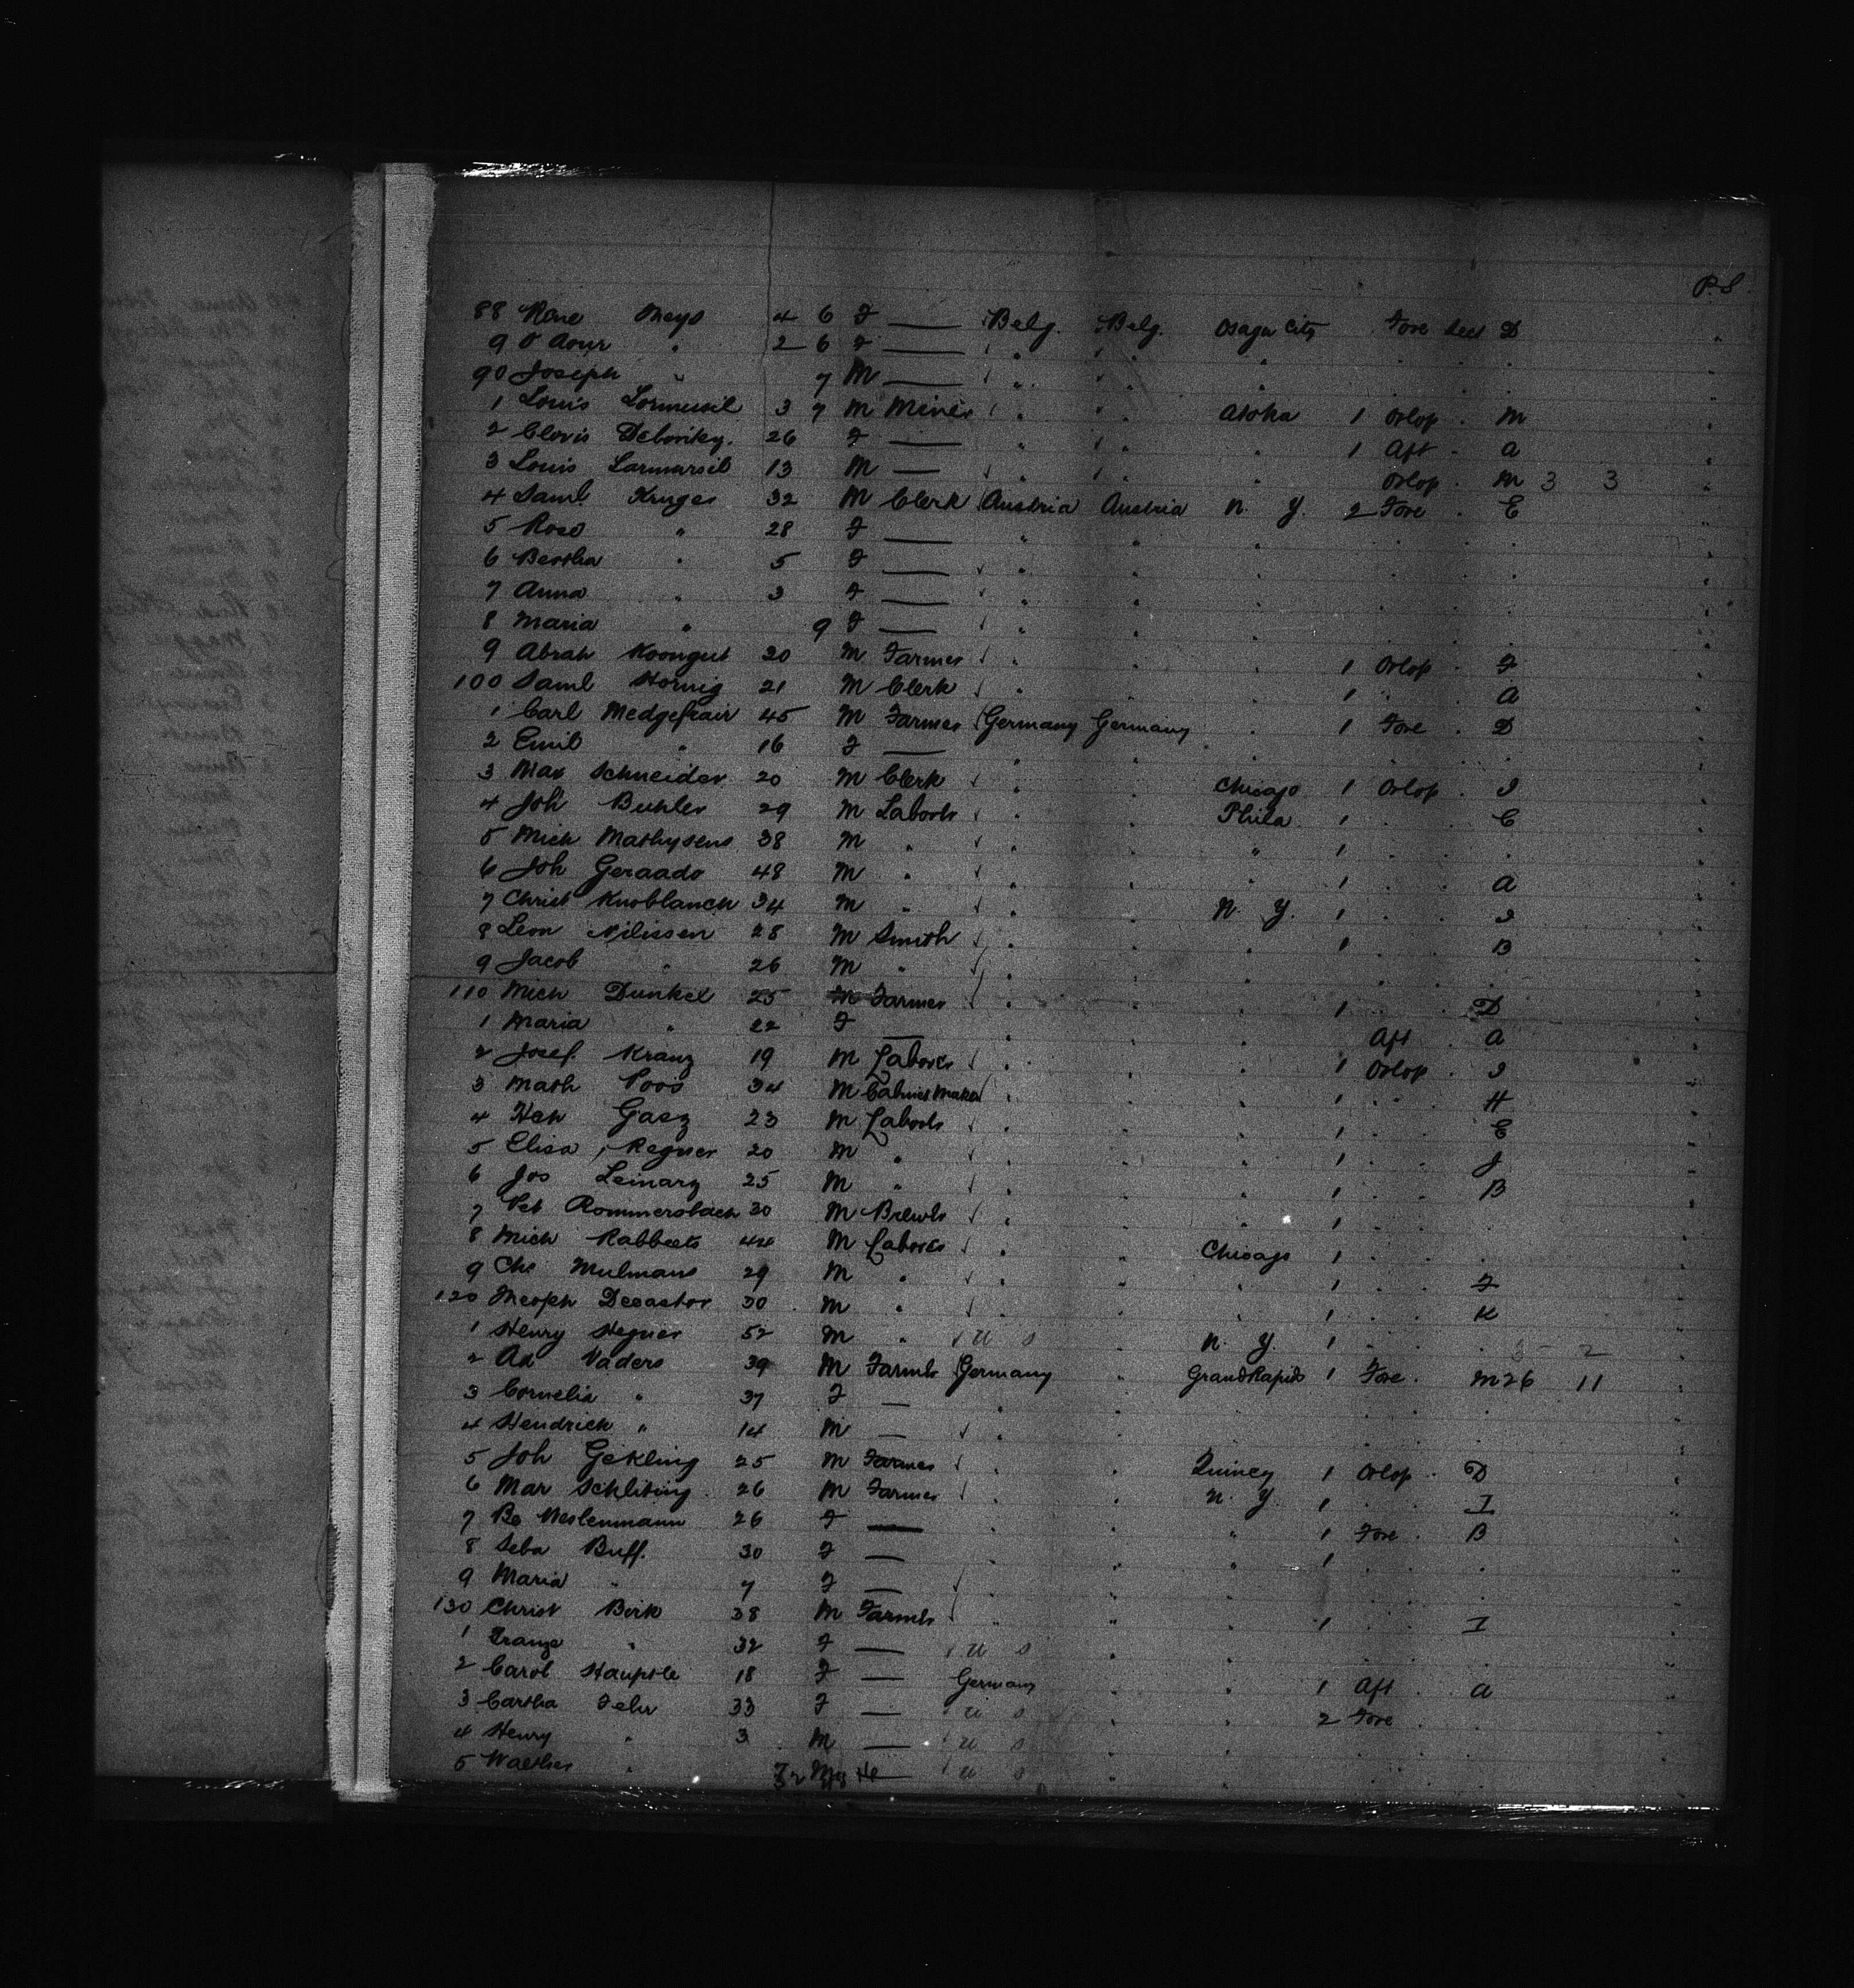 P.S.
88 Rone Meys 4 6 F — Belg. Belg. Osaga City Fore Sect D
9 " 2 6 F — " " " . . .
90 Joseph " 7 M — " " " . . .
1 Louis Lormusil 3 7 M Miner " " Atoka 1 Orlop . M
2 Clovis Debonky. 26 F — " " . 1 Aft . A
3 Louis Larmarsil 13 M — " " . Orlop . M 3 3
4 Saml Kruger 32 M Clerk Austria Austria N. Y. 2 Fore . E
5 Rosa " 28 F — " " . . . .
6 Bertha " 5 F — " " . . . .
7 Anna " 3 F — " " . . . .
8 Maria " 9 F — " " . . . .
9 Abrah Koongut 20 M Farmer " " . 1 Orlop . F
100 Saml Hornig 21 M Clerk " " . 1 . . A
1 Carl Medgefrair 45 M Farmer Germany Germany . 1 Fore . D
2 Emil " 16 F — " " . . . .
3 Max Schneider 20 M Clerk " " Chicago 1 Orlop . I
4 Joh Buhler 29 M Labor " " Phila. 1 . . C
5 Mich Mathysens 38 M " " " " 1 . . .
6 Joh Geraado 48 M " " " " 1 . . A
7 Christ Knoblanch 34 M " " " N. Y. 1 . . I
8 Leon Nilissen 28 M Smith " " . 1 . . B
9 Jacob " 26 M " " " . . . .
110 Mich Dunkel 25 M Farmer " " . 1 . . D
1 Maria " 22 F — " " . Aft . A
2 Josef. Kranz 19 M Laborer " " . 1 Orlop . I
3 Math Poos 34 M Cabinet Maker " " . 1 . . H
4 Hch Gasz 23 M Labor " " . 1 . . E
5 Elisa Regner 20 M " " " . 1 . . J
6 Jos Leinarz 25 M " " " . 1 . . B
7 Pet Rommersbach 30 M Brewer " " . 1 . . .
8 Mich Rabbeets 44 M Laborer " " Chicago 1 . . .
9 Chs Mulmans 29 M " " " " 1 . . F
120 Theoph Decastor 30 M " " " " 1 . . K
1 Henry Hegner 52 M " U S " N. Y. 1 . . . 3 2
2 Ad Vaders 39 M Farmer Germany " Grand Rapids 1 Fore . M 26 11
3 Cornelia " 37 F — " " . . . .
4 Hendrick " 14 M — " " . . . .
5 Joh Gekling 25 M Farmer " " Quincy 1 Orlop . D
6 Mar Schliting 26 M Farmer " " N. Y. 1 . . I
7 Be Weslenmann 26 F — " " " 1 Fore . B
8 Seba Buff. 30 F — " " " 1 . .
9 Maria " 7 F — " " . . . .
130 Christ Birk 38 M Farmer " " " 1 . . I
1 Franze " 32 F — U S " . . . .
2 Carol Haupsle 18 F — Germany " . 1 Aft . A
3 Cartha Fehr 33 F — U S " . 2 Fore . .
4 Henry " 3 M — U S " . . . .
5 Walther " — U S " . . . .